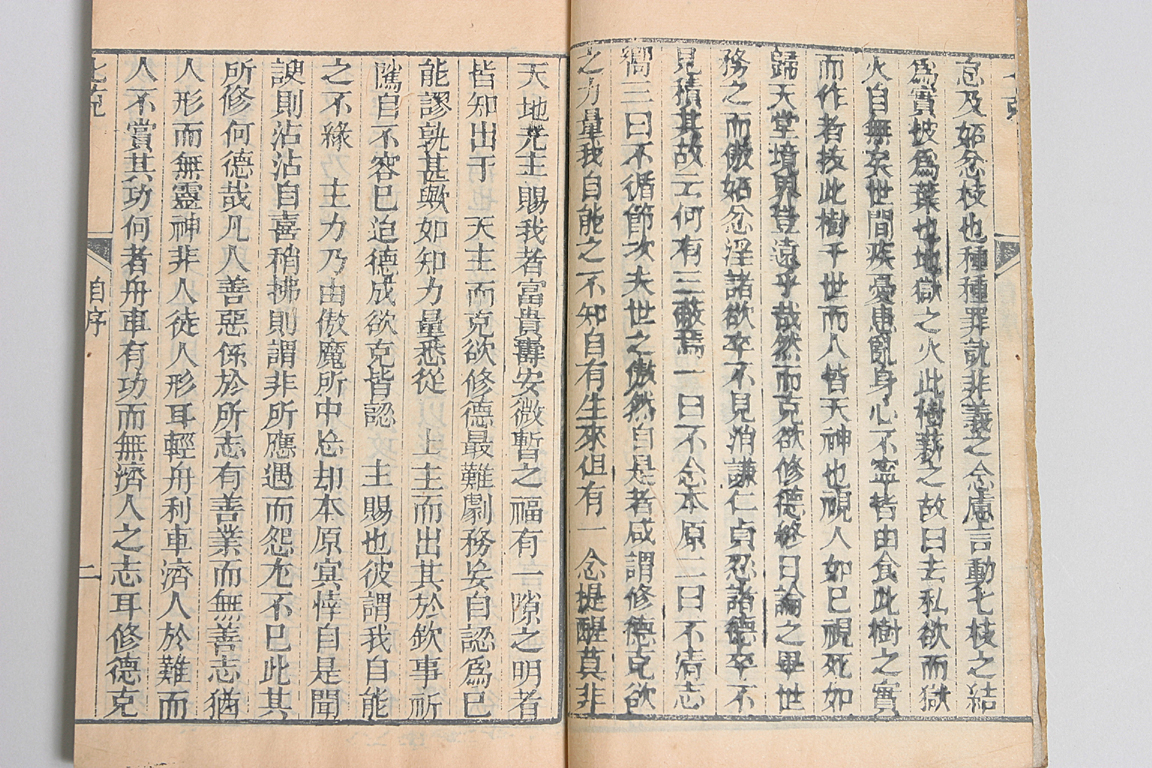 怠及妬忿枝也種種罪訧非義之念慮言動七枝之結
爲實披爲葉也地獄之火此樹薪之故曰去私欲而獄
火自無矣世間疾憂患亂身心不寧皆由食此樹之實
而作者拔此樹于世而人皆天神也視人如己視死如
歸天堂境界登遠乎哉然而克欲修德終日論之畢世
務之而傲妬忿淫諸欲卒不見消謙仁貞忍諸德卒不
見積其故云何有三蔽焉一曰不念本原二曰不清志
嚮三曰不循節次夫世之傲然自是者咸謂修德克欲
之力量我自能之不知自有生來但有一念提醒莫非
天地
主賜我者富貴壽安微暫之福有一隙之明者
皆知出于 天主而克欲修德最難劇務妄自認爲己
能謬孰甚歟如知力量悉從 上主而出其於欽事祈
隲自不容已迨德成欲克皆認 主賜也彼謂我自能
之不緣 主力乃由傲魔所中忘却本原宜悻自是聞
諛則沾沾自喜稍拂則謂非所應遇而怨尤不已此其
所修何德哉凡人善惡係於所志有善業而無善志猶
人形而無靈神非人徒人形耳輕舟利車濟人於難而
人不賞其功何者舟車有功而無濟人之志耳修德克
七克
自序
二